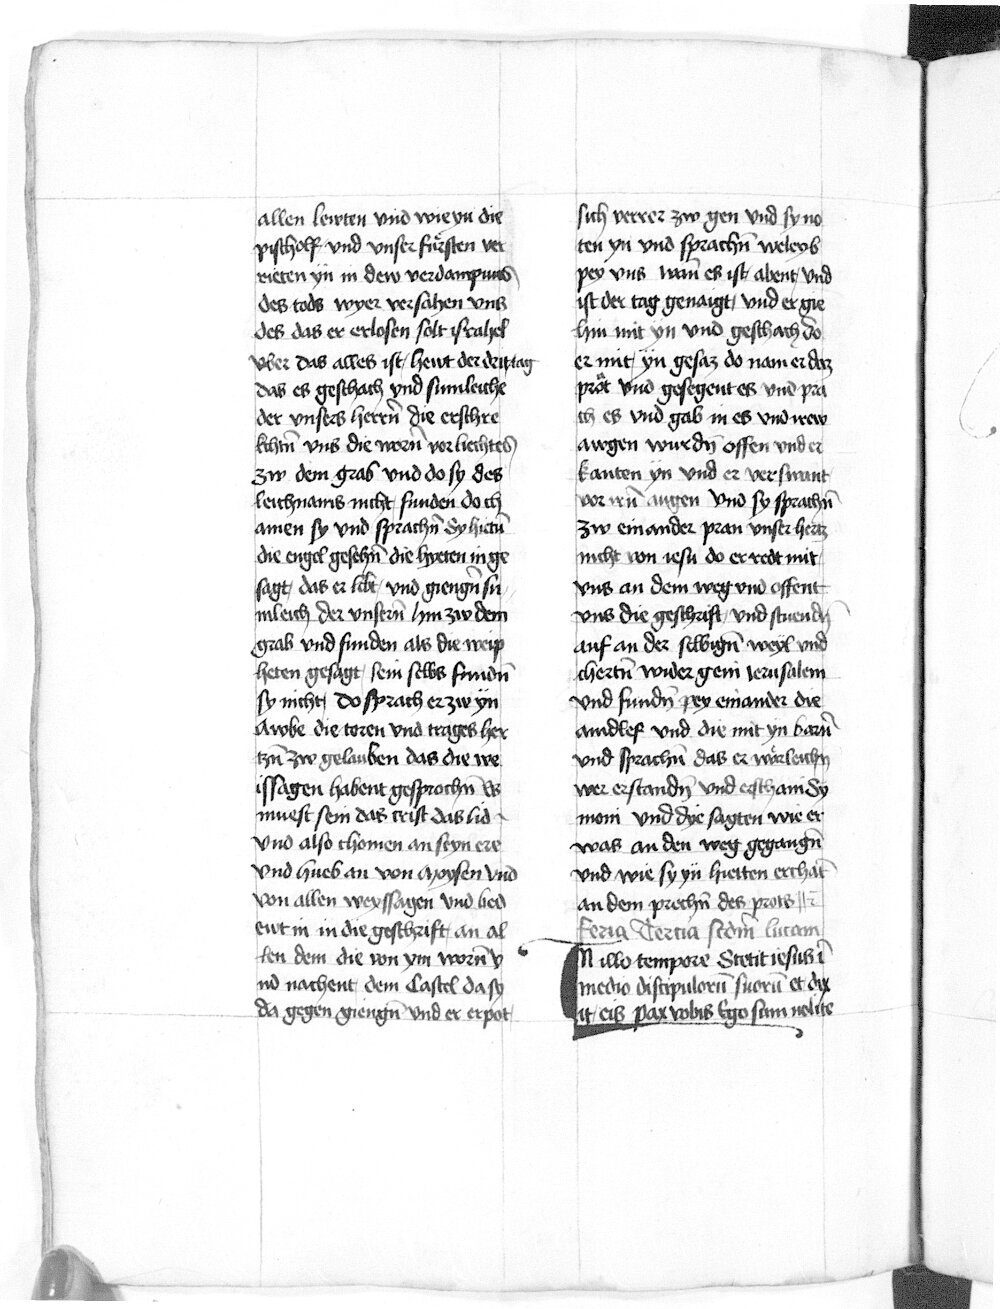 allen lewten vnd wie yn die
pischolf vnd vnser fürsten ver
rieten yn in dew verdampnuss
des tods wyer versahen vns
des das er erlosen solt israhel
vber das alles ist hewt der drit tag
das es geschach vnd sumleiche
der vnsers herrn̄ die erschre
kchtn̄ vns die worn̄ vor liechtes
zw dem grab vnd do sy des
leichnams nicht funden do ch
amen sy vnd sprachn̄ Sy hietn̄
die engel gesehn̄ die hyeten in ge
sagt das er lebt vnd giengn̄ su
mleich der vnsern̄ hin zw dem
grab vnd funden als die weip
heten gesagt sein selbs fundn̄
sy nicht Do sprach er zw yn
Awbe die toren vnd trages her
tzn̄ zw gelauben das die we
issagen habent gesprochn̄ Es
muest sein das crist das lid
vnd also chomen an seyn ere
vnd hueb an von Moysen vnd
von allen weyssagen vnd bed
ewt in in die geschrift an al
len dem die von ym worn̄ v
nd nachent dem Castel da sy
da gegen giengn̄ vnd er erpot
sich verrer zw gen vnd sy no
ten yn vnd sprachn̄ weleyb
pey vns wan̄ es ist abent vnd
ist der tag genaigt vnd er gie
hin mit yn vnd geschach do
er mit yn gesaz do nam er daz
pröt vnd gesegent es vnd pra
ch es vnd gab in es vnd irew
awgen wurdn̄ offen vnd er
kanten yn vnd er verswant
vor irn̄ augen vnd sy sprachn̄
zw einander pran vnser hertz
nicht von iesu do er redt mit
vns an dem weg vnd offent
vns die geschrift vnd stuendn̄
auf an der selbign̄ weyl vnd
chertn̄ wider gein Jerusalem
vnd fundn̄ pey einander die
aindlef vnd die mit yn warn̄
vnd sprachn̄ das er wärleichn̄
wer erstandn̄ vnd erschain Sy
moni vnd dye sagten wie er
was an den weg gegangn̄
vnd wie sy yn hietten erchāt
an dem prechn̄ des prots
Feria Tercia scd̄m lucam
In illo tempore Stetit iesus ī
medio discipulorū suorū et dix
it eis Pax vobis Ego sum nolite